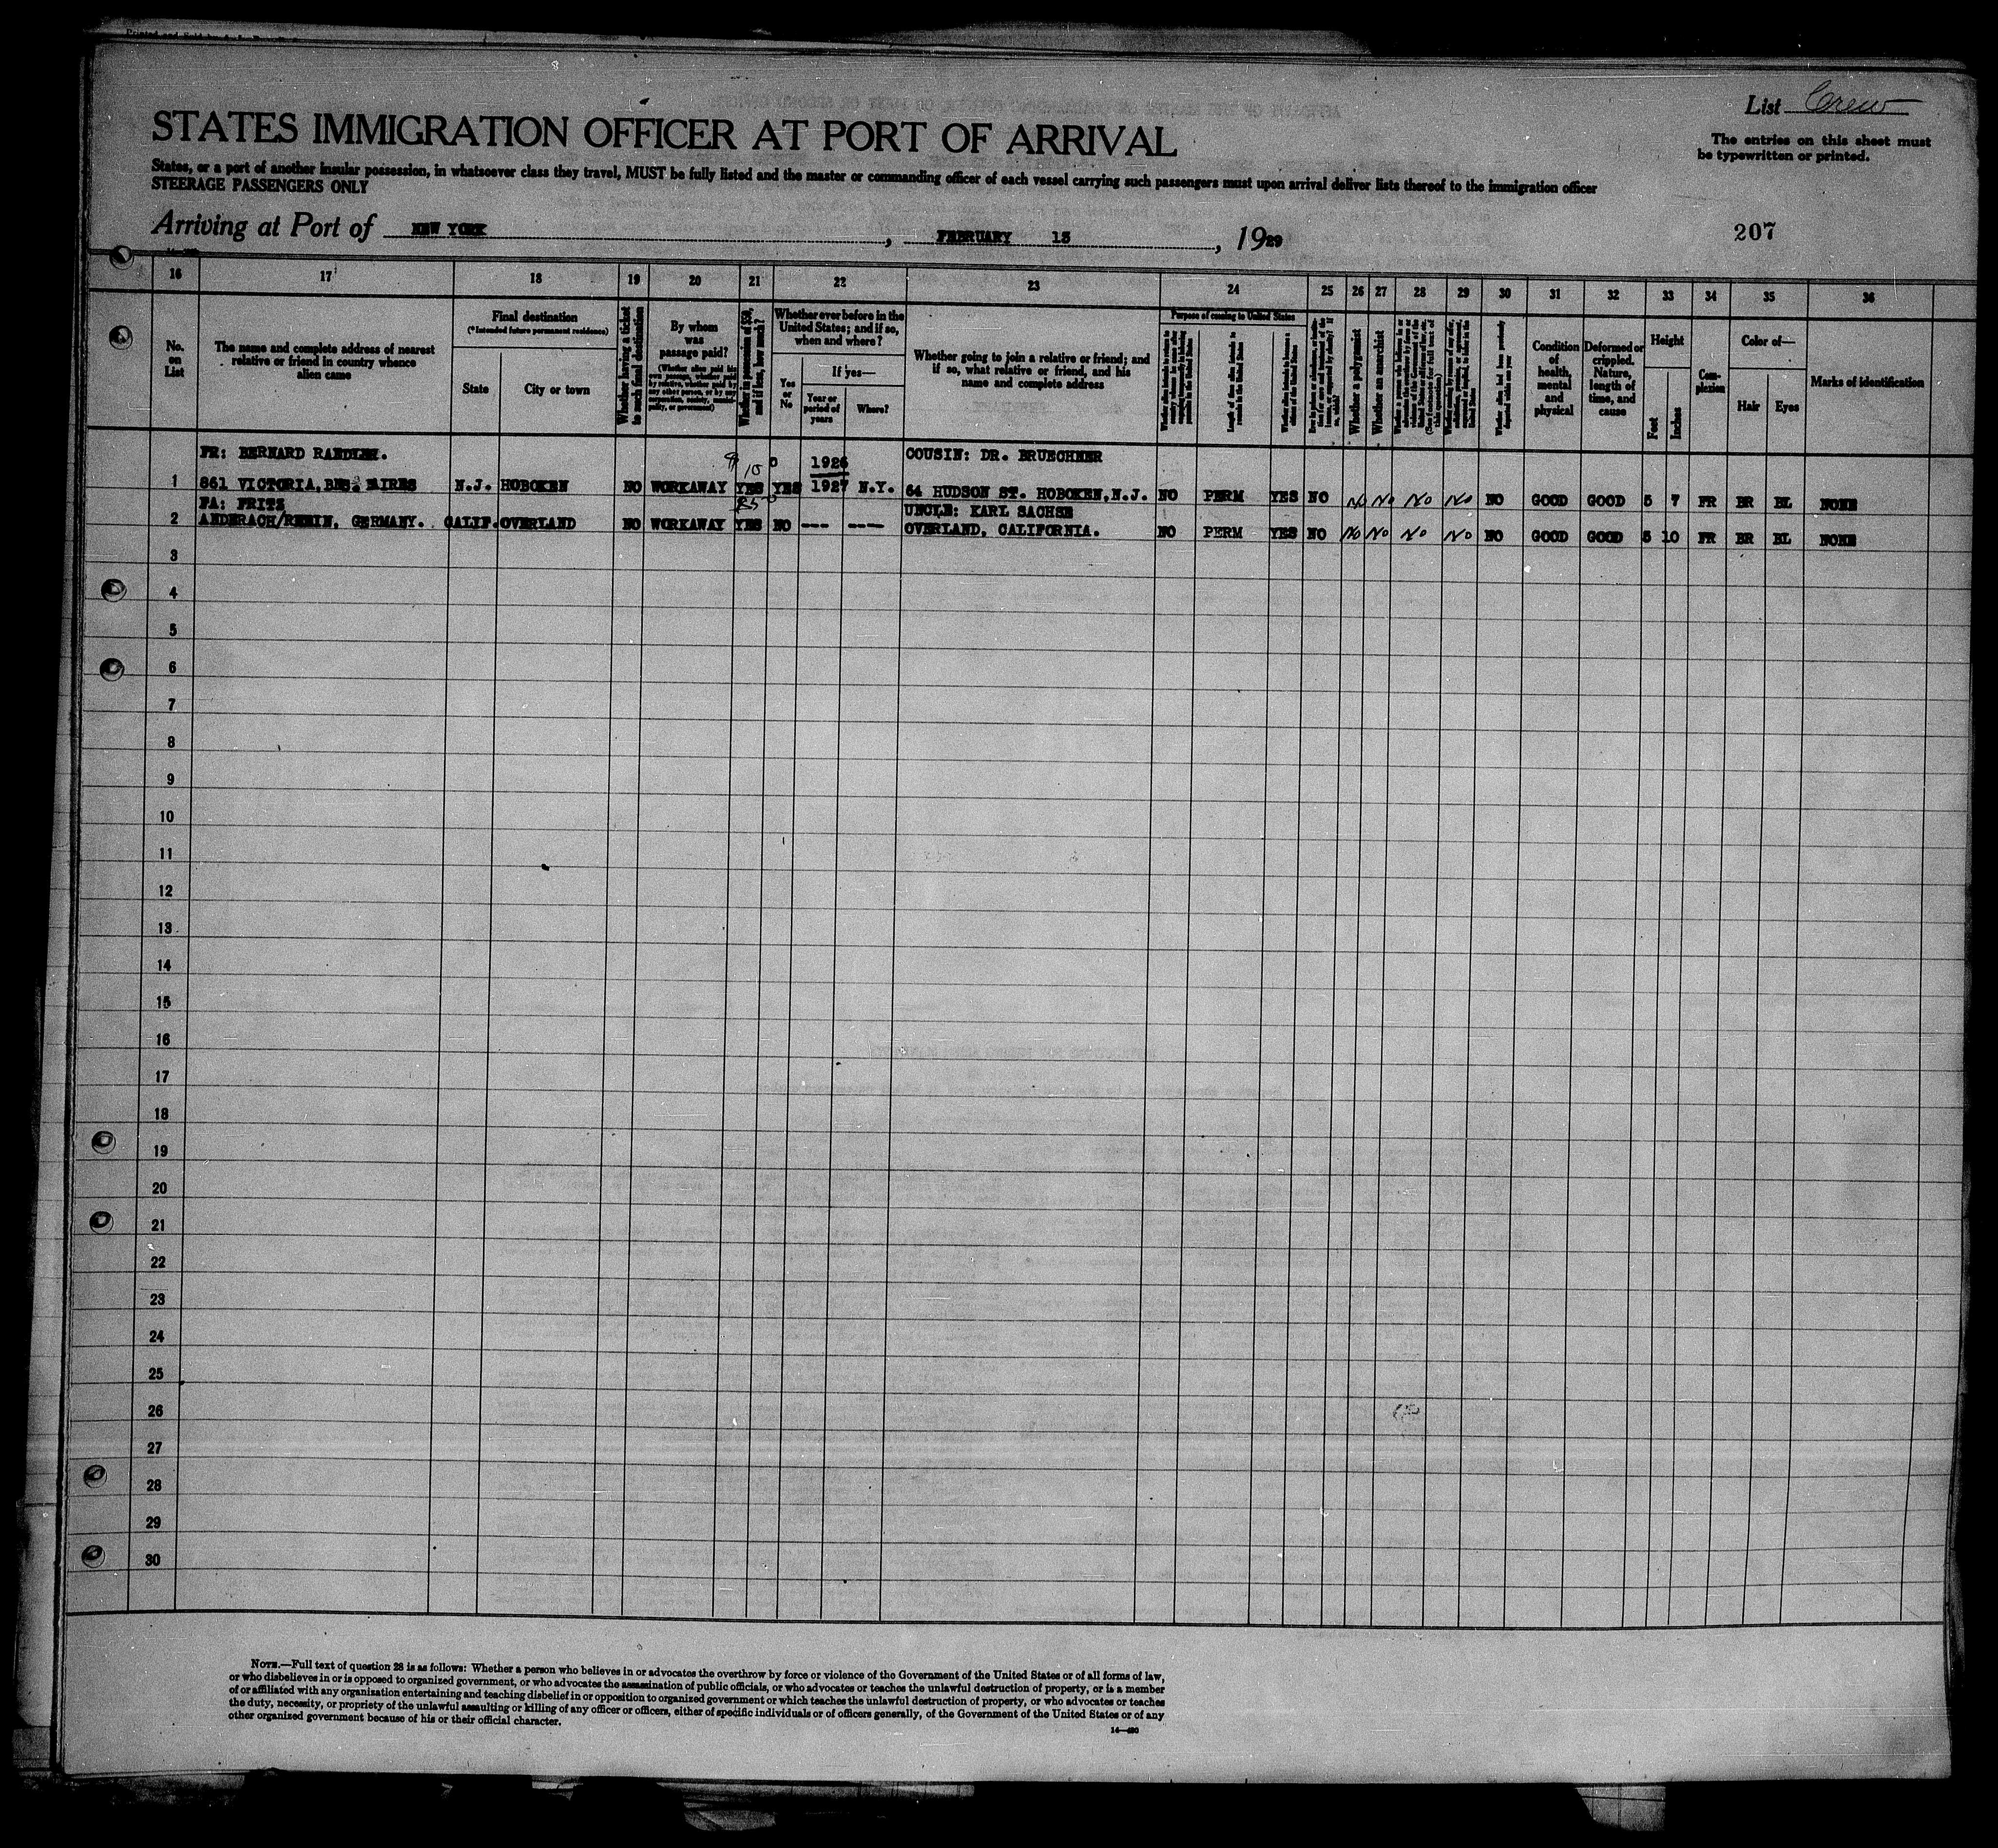 List Crew
STATES IMMIGRATION OFFICER AT PORT OF ARRIVAL
The entries on this sheet must
be typewritten or printed.
States, or a port of another insular possession, in whatsoever class they travel, MUST be fully listed and the master or commanding officer of each vessel carrying such passengers must upon arrival deliver lists thereof to the immigration officer
STEERAGE PASSENGERS ONLY
Arriving at Port of NEW YORK, FEBRUARY 13, 1929
207
16 17 18 19 20 21 22 23 24 25 26 27 28 29 30 31 32 33 34 35 36
No. on List
The name and complete address of nearest
relative or friend in country whence
alien came
Final destination
(*Intended future permanent residence)
State
City or town
Whether having a ticket
to such final destination
By whom
was
passage paid?
(Whether alien paid his
own passage, whether paid
by relative, whether paid by
any other person, or by any
corporation, society, munici-
pality, or government)
Whether in possession of $50,
and if less, how much?
Whether ever before in the
United States; and if so,
when and where?
Yes
or
No
If yes—
Year or
period of
years
Where?
Whether going to join a relative or friend; and
if so, what relative or friend, and his
name and complete address
Purpose of coming to United States
Length of time alien intends to
remain in the United States
Whether alien intends to become a
citizen of the United States
Whether a polygamist
Whether an anarchist
Condition
of
health,
mental
and
physical
Deformed or
crippled.
Nature,
length of
time, and
cause
Height
Feet
Inches
Com-
plexion
Color of—
Hair
Eyes
Marks of identification
FR: BERNARD COUSIN: DR. BRUECHNER
1926
1 861 VICTORIA, BNS. AIRES N.J. HOBOKEN NO WORKAWAY YES YES 1927 N.Y. 64 HUDSON ST. HOBOKEN, N.J. NO PERM YES NO No No No No NO GOOD GOOD 5 7 FR BR BL NONE
FA: FRITZ UNCLE: KARL SACHSE
2 ANDERACH/RHEIN, GERMANY. CALIF. OVERLAND NO WORKAWAY YES NO --- --- OVERLAND, CALIFORNIA. NO PERM YES NO No No No No NO GOOD GOOD 5 10 FR BR BL NONE
3
4
5
6
7
8
9
10
11
12
13
14
15
16
17
18
19
20
21
22
23
24
25
26
27
28
29
30
NOTE.—Full text of question 28 is as follows: Whether a person who believes in or advocates the overthrow by force or violence of the Government of the United States or of all forms of law,
or who disbelieves in or is opposed to organized government, or who advocates the assassination of public officials, or who advocates or teaches the unlawful destruction of property, or is a member
of or affiliated with any organization entertaining and teaching disbelief in or opposition to organized government or which teaches the unlawful destruction of property, or who advocates or teaches
the duty, necessity, or propriety of the unlawful assaulting or killing of any officer or officers, either of specific individuals or of officers generally, of the Government of the United States or of any
other organized government because of his or their official character.
14—480